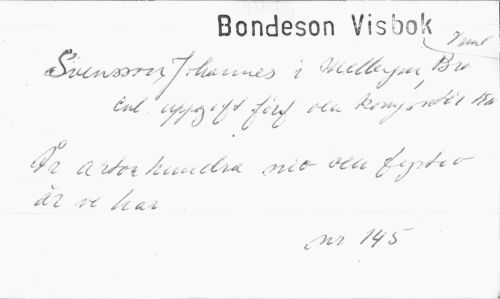 Bondeson Visbok
Svensson, Johannes i Mellby, Bro
enl. uppgift förf och kompositör
År artonhundra nio och fyrtio
år vi har
nr 145